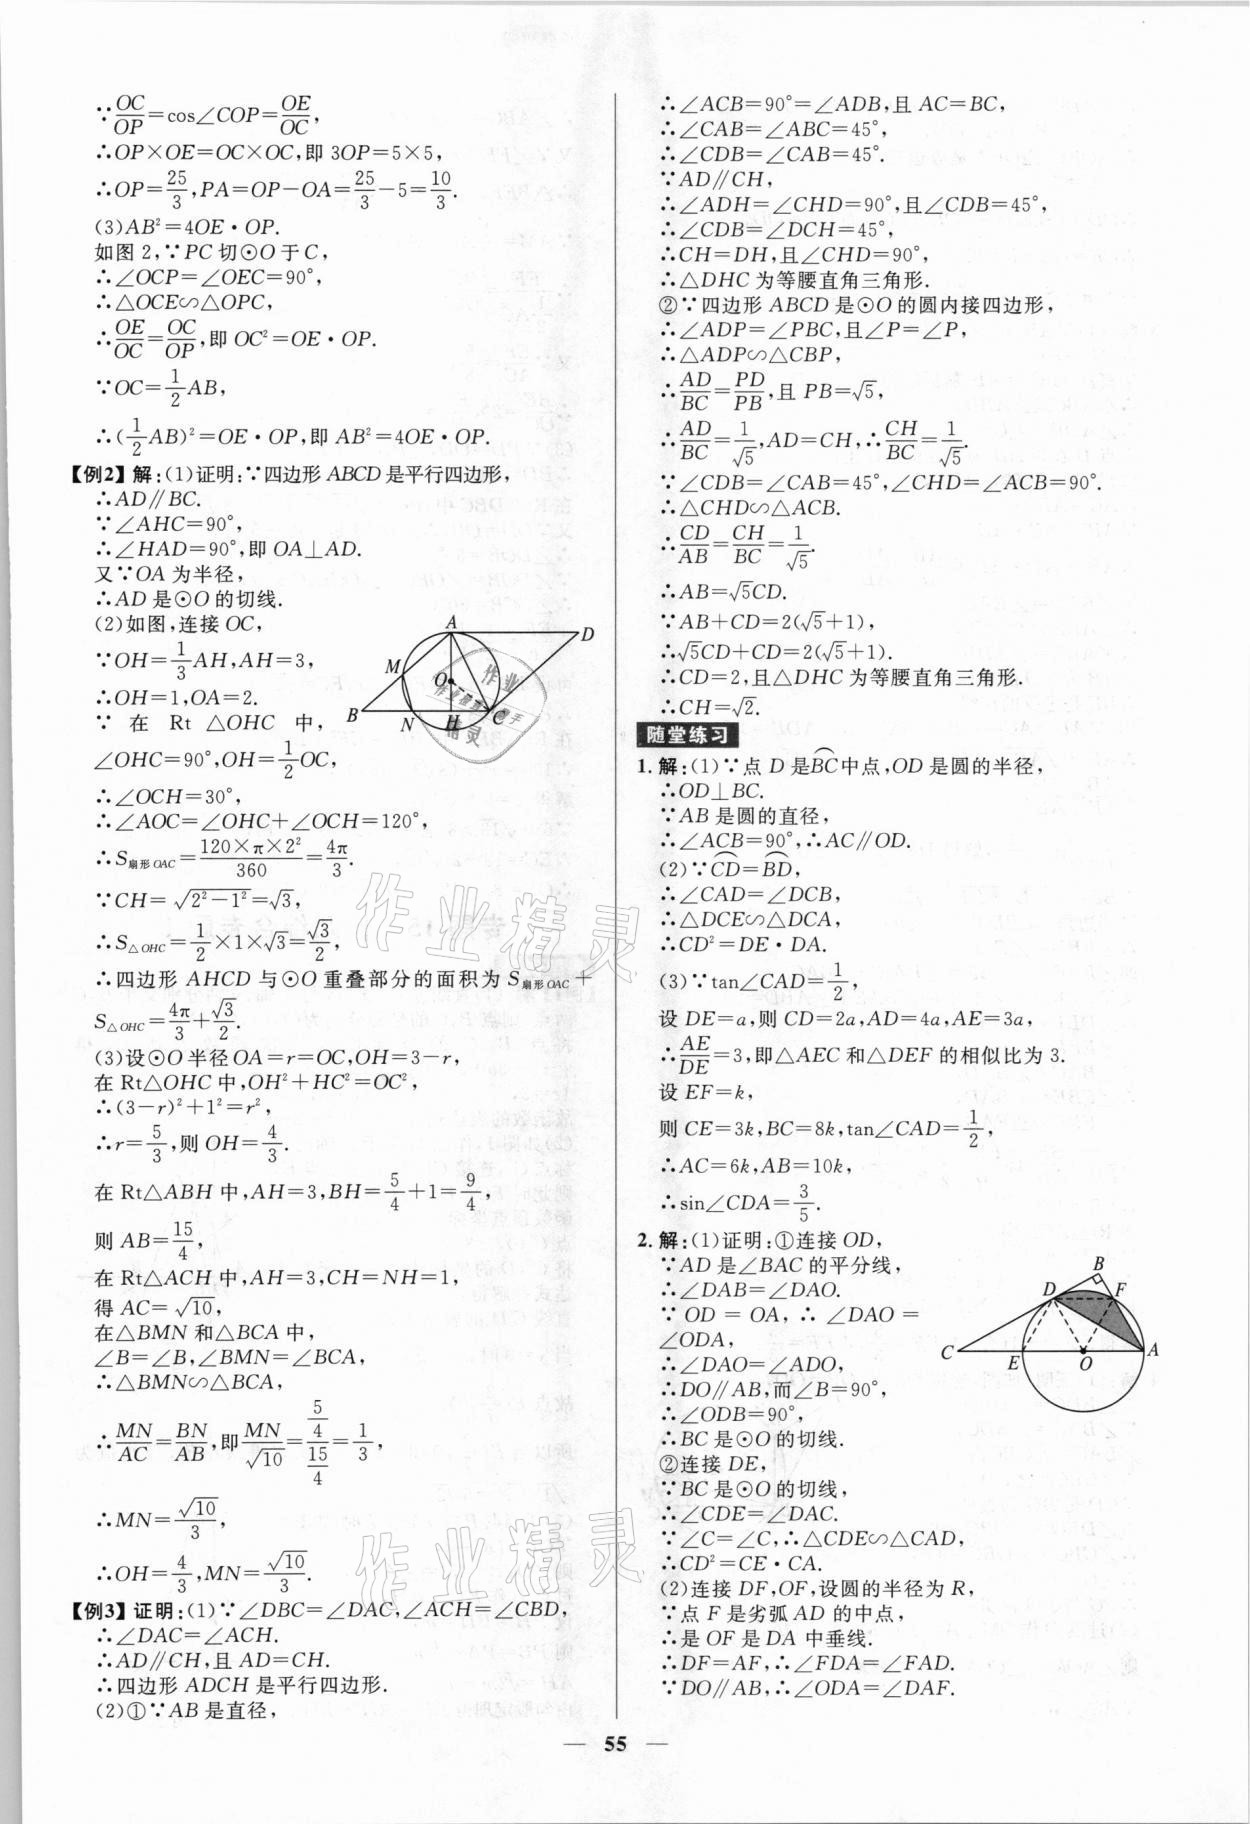 ∵OC/OP=cos∠COP=OE/OC,
∴OP×OE=OC×OC,即 3OP=5×5,
∴OP=25/3,PA=OP−OA=25/3−5=10/3.
(3)AB²=4OE·OP.
如图 2,∵PC 切⊙O 于 C,
∴∠OCP=∠OEC=90°,
∴△OCE∽△OPC,
∴OE/OC=OC/OP,即 OC²=OE·OP.
∵OC=1/2AB,
∴(1/2AB)²=OE·OP,即 AB²=4OE·OP.
【例2】解:(1)证明:∵四边形 ABCD 是平行四边形,
∴AD∥BC.
∵∠AHC=90°,
∴∠HAD=90°,即 OA⊥AD.
又∵OA 为半径,
∴AD 是⊙O 的切线.
(2)如图,连接 OC,
∵OH=1/3AH,AH=3,
∴OH=1,OA=2.
∵ 在 Rt △OHC 中,
∠OHC=90°,OH=1/2OC,
∴∠OCH=30°,
∴∠AOC=∠OHC+∠OCH=120°,
∴S扇形OAC=120×π×2²/360=4π/3.
∵CH=√(2²−1²)=√3,
∴S△OHC=1/2×1×√3=√3/2,
∴四边形 AHCD 与⊙O 重叠部分的面积为 S扇形OAC+
S△OHC=4π/3+√3/2.
(3)设⊙O 半径 OA=r=OC,OH=3−r,
在 Rt△OHC 中,OH²+HC²=OC²,
∴(3−r)²+1²=r²,
∴r=5/3,则 OH=4/3.
在 Rt△ABH 中,AH=3,BH=5/4+1=9/4,
则 AB=15/4,
在 Rt△ACH 中,AH=3,CH=NH=1,
得 AC=√10,
在△BMN 和△BCA 中,
∠B=∠B,∠BMN=∠BCA,
∴△BMN∽△BCA,
∴MN/AC=BN/AB,即MN/√10=(5/4)/(15/4)=1/3,
∴MN=√10/3,
∴OH=4/3,MN=√10/3.
【例3】证明:(1)∵∠DBC=∠DAC,∠ACH=∠CBD,
∴∠DAC=∠ACH.
∴AD∥CH,且 AD=CH.
∴四边形 ADCH 是平行四边形.
(2)①∵AB 是直径,
A
D
M
O
B
N
H
C
∴∠ACB=90°=∠ADB,且 AC=BC,
∴∠CAB=∠ABC=45°,
∴∠CDB=∠CAB=45°.
∵AD∥CH,
∴∠ADH=∠CHD=90°,且∠CDB=45°,
∴∠CDB=∠DCH=45°,
∴CH=DH,且∠CHD=90°,
∴△DHC 为等腰直角三角形.
②∵四边形 ABCD 是⊙O 的圆内接四边形,
∴∠ADP=∠PBC,且∠P=∠P,
∴△ADP∽△CBP,
∴AD/BC=PD/PB,且 PB=√5,
∴AD/BC=1/√5,AD=CH,∴CH/BC=1/√5.
∵∠CDB=∠CAB=45°,∠CHD=∠ACB=90°.
∴△CHD∽△ACB.
∴CD/AB=CH/BC=1/√5.
∴AB=√5CD.
∵AB+CD=2(√5+1),
∴√5CD+CD=2(√5+1).
∴CD=2,且△DHC 为等腰直角三角形.
∴CH=√2.
随堂练习
1.解:(1)∵点 D 是B͡C中点,OD 是圆的半径,
∴OD⊥BC.
∵AB 是圆的直径,
∴∠ACB=90°,∴AC∥OD.
(2)∵C͡D=B͡D,
∴∠CAD=∠DCB,
∴△DCE∽△DCA,
∴CD²=DE·DA.
(3)∵tan∠CAD=1/2,
设 DE=a,则 CD=2a,AD=4a,AE=3a,
∴AE/DE=3,即△AEC 和△DEF 的相似比为 3.
设 EF=k,
则 CE=3k,BC=8k,tan∠CAD=1/2,
∴AC=6k,AB=10k,
∴sin∠CDA=3/5.
2.解:(1)证明:①连接 OD,
∵AD 是∠BAC 的平分线,
∴∠DAB=∠DAO.
∵ OD = OA, ∴ ∠DAO =
∠ODA,
∴∠DAO=∠ADO,
∴DO∥AB,而∠B=90°,
∴∠ODB=90°,
∴BC 是⊙O 的切线.
②连接 DE,
∵BC 是⊙O 的切线,
∴∠CDE=∠DAC.
∵∠C=∠C,∴△CDE∽△CAD,
∴CD²=CE·CA.
(2)连接 DF,OF,设圆的半径为 R,
∵点 F 是劣弧 AD 的中点,
∴是 OF 是 DA 中垂线.
∴DF=AF,∴∠FDA=∠FAD.
∵DO∥AB,∴∠ODA=∠DAF.
B
D
F
C
E
O
A
作业精灵
作业精灵
— 55 —